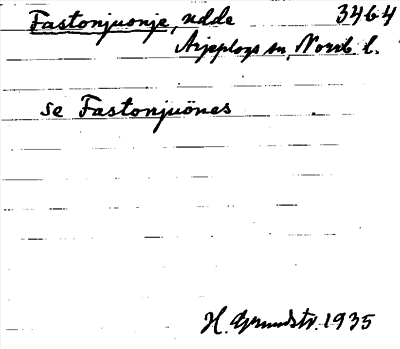 Fastonjuonje, udde 3464
Arjeplogs sn, Norrb l.
se Fastonjuönes
H. Grundstr. 1935